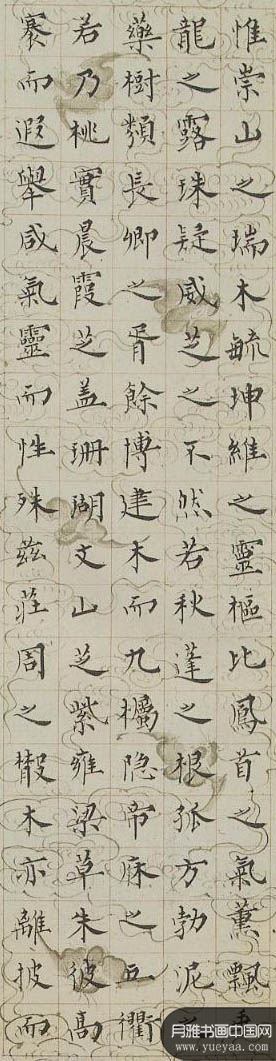 惟崇山之瑞木毓坤維之靈樞比鳳首之氣薰飄
龍之露珠疑威芝之不然若秋蓬之根孤方勃泥
藥樹類長卿之胥餘博建木而九欘隐帝庥之五衢
若乃桃實晨霞芝蓋珊瑚文山芝紫雍梁草朱彼高
褰而遐舉咸氣靈而性殊茲莊周之散木亦離披而
月雅书画中国网
www.yueyaa.com